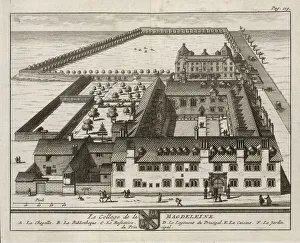 Pag. 114
Le College de la MAGDELEINE.
A. La Chapelle. B. La Bibliotheque. C. Le Refectoire. D. Le Logement du Principal. E. La Cuisine. F. Le Jardin
du Prin cipal.